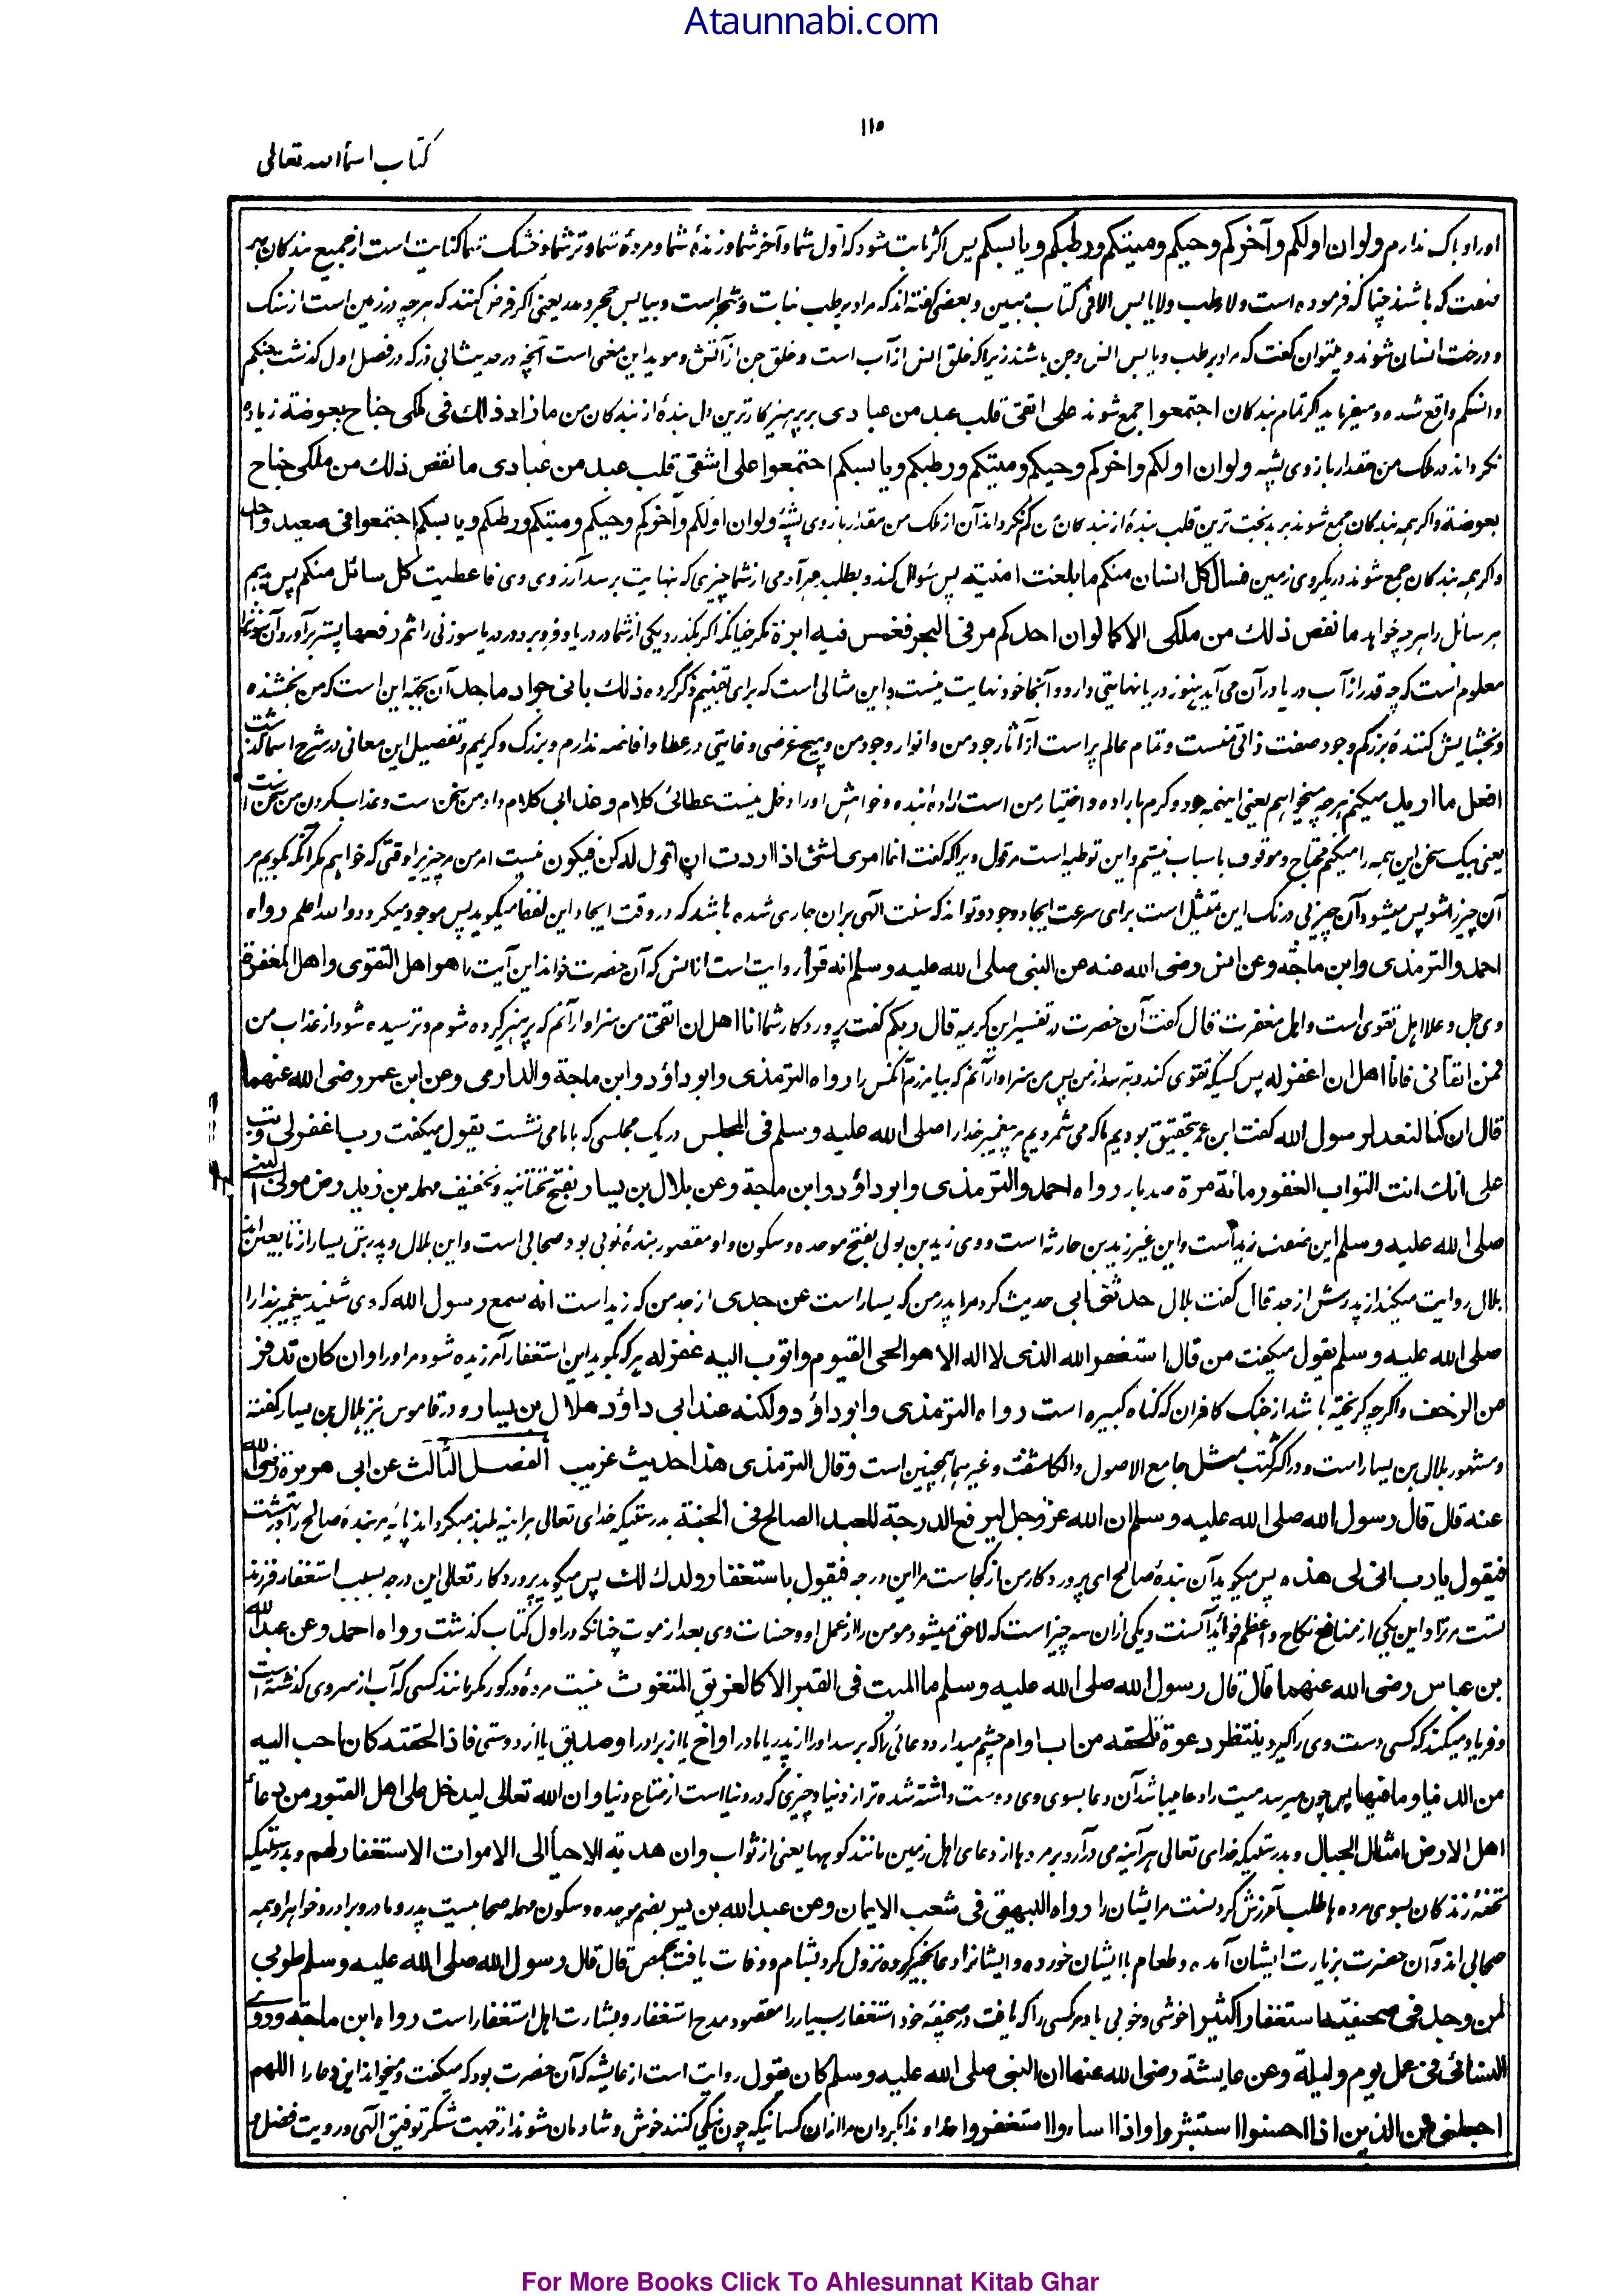 Ataunnabi.com
١١٥
کتاب اسماء الله تعالی
اورا و باک ندارم ولو ان اولکم وآخرکم وحیکم ومیتکم ورطبکم ویابسکم پس اگر ثابت شود که اول شما وآخر شما وزندۀ شما ومردۀ شما وتر شما وخشک شما کنایت است از جمیع بندگان بهر
صفت که باشند چنانکه فرموده است ولا رطب ولا یابس الا فی کتاب مبین وبعضی گفته اند که مراد برطب نبات وشجر است وبیابس حجر ومدر یعنی اگر فرض کنند که هر چه در زمین است از سنگ
ودرخت انسان شوند ومیتوان گفت که مراد برطب ویابس انس وجن باشند زیرا که خلق انس از آب است وخلق جن از آتش وموید این معنی است آنچه در حدیث ابی ذر که در فصل اول گذشت جنکم
وانسکم واقع شده ومیفرماید اگر تمام بندگان اجتمعوا جمع شوند علی اتقی قلب عبد من عبادی بر پرهیزگارترین دل بندۀ از بندگان من ما زاد ذلک فی ملکی جناح بعوضة زیاده
نگرداند در ملک من مقدار بازوی پشه ولو ان اولکم واخرکم وحیکم ومیتکم ورطبکم ویابسکم اجتمعوا علی اشقی قلب عبد من عبادی ما نقص ذلک من ملکی جناح
بعوضة واگر همه بندگان جمع شوند بر بدبخت ترین قلب بندۀ از بندگان من کم نگرداند آن از ملک من مقدار بازوی پشۀ ولو ان اولکم وآخرکم وحیکم ومیتکم ورطبکم ویابسکم اجتمعوا فی صعید واحد
واگر همه بندگان جمع شوند در یکروی زمین فسال کل انسان منکم ما بلغت امنیته پس سوال کند وبطلب هر آدمی از شما چیزی که بنهایت برسد آرزوی وی فاعطیت کل سائل منکم پس بدهم
هر سائل را هر چه خواهد ما نقص ذلک من ملکی الا کما لو ان احدکم مر فی البحر فغمس فیه ابرة مگر چنانکه اگر بگذرد یکی از شما در دریا وفرو برد در دریا سوزنی را ثم رفعها پستر برآورد آن سوزن را
معلوم است که چه قدر از آب دریا در آن می آید هنوز دریا نهایتی دارد وآنجا خود نهایت نیست واین مثالی است که برای تفهیم ذکر کرده ذلک بانی جواد ماجد آن بجهة این است که من بخشنده
وبخشایش کنندۀ بزرگم وجود صفت ذاتی منست وتمام عالم پر است از آثار جود من وانوار وجود من وهیچ غرضی وغایتی در عطا وافاضه ندارم وبزرگ وکریم وتفصیل این معانی در شرح اسما گذشت
افعل ما ارید میکنم هر چه میخواهم یعنی اینهمه جود وکرم باراده واختیار من است اراده بنده وخواهش اورا دخل نیست عطائی کلام وعذابی کلام دادن من سخن است وعذاب کردن من سخن است
یعنی بیک سخن این همه را میکنم محتاج وموقوف باسباب نیستم واین توطیه است مر قول ویرا که گفت انما امری لشئ اذا اردت ان اقول له کن فیکون نیست امر من مر چیزیرا وقتی که خواهم مگر آنکه بگویم مر
آن چیز را شو پس میشود آن چیز بی درنگ این تمثیل است برای سرعت ایجاد وجود وتواند که سنت الهی بران جاری شده باشد که در وقت ایجاد این لفظ میگوید پس موجود میگردد والله اعلم رواه
احمد والترمذی وابن ماجه وعن انس رضی الله عنه عن النبی صلی الله علیه وسلم انه قرأ روایت است از انس که آن حضرت خواند این آیت را هو اهل التقوی واهل المغفرة
وی جل وعلا اهل تقوی است واهل مغفرت قال گفت آن حضرت در تفسیر این کریمه قال ربکم گفت پروردگار شما انا اهل ان اتقی من سزاوار آنم که پرهیز کرده شوم وترسیده شود از عذاب من
فمن اتقانی فانا اهل ان اغفر له پس کسیکه تقوی کند وبترسد از من پس من سزاوار آنم که بیامرزم آنکس را رواه الترمذی وابو داؤد وابن ماجة والدارمی وعن ابن عمر رضی الله عنهما
قال ان کنا لنعد لرسول الله گفت ابن عمر بتحقیق بودیم ما که می شمردیم مر پیغمبر خدا را صلی الله علیه وسلم فی المجلس در یک مجلسی که با ما می نشست یقول میگفت رب اغفر لی وتب
علی انک انت التواب الغفور مائة مرة صد بار رواه احمد والترمذی وابو داؤد وابن ماجة وعن بلال بن یسار بفتح تحتانیه وتخفیف مهمله بن زید رض مولی النبی
صلی الله علیه وسلم این صفت زید است واین غیر زید بن حارثه است ووی زید بن بولی بفتح موحده وسکون واو مقصور بندۀ نوبی بود صحابی است واین بلال وپدرش یسار از تابعین اند
بلال روایت میکند از پدرش از جد قال گفت بلال حدثنی ابی حدیث کرد مرا پدر من که یسار است عن جدی از جد من که زید است انه سمع رسول الله که وی شنید پیغمبر خدا را
صلی الله علیه وسلم یقول میگفت من قال استغفر الله الذی لا اله الا هو الحی القیوم واتوب الیه غفر له هر که بگوید این استغفار آمرزیده شود مر اورا وان کان قد فر
من الزحف واگرچه گریخته باشد از جنگ کافران که گناه کبیره است رواه الترمذی وابو داؤد ولکنه عند ابی داؤد هلال بن یسار ودر قاموس نیز هلال بن یسار گفته
ومشهور بلال بن یسار است ودر اکثر کتب مثل جامع الاصول والکاشف وغیرهما همچنین است وقال الترمذی هذا حدیث غریب الفصل الثالث عن ابی هریرة رضی الله
عنه قال قال رسول الله صلی الله علیه وسلم ان الله عز وجل لیرفع الدرجة للعبد الصالح فی الجنة بدرستیکه خدای تعالی هر آینه بلند میگرداند پایه مر بندۀ صالح را در بهشت
فیقول یا رب انی لی هذه پس میگوید آن بندۀ صالح ای پروردگار من از کجاست مرا این درجه فیقول باستغفار ولدک لک پس میگوید پروردگار تعالی این درجه بسبب استغفار فرزند
تست مر ترا واین یکی از منافع نکاح واعظم فوائد آنست ویکی ازان سه چیز است که لاحق میشود مومن را از عمل او وحسنات وی بعد از موت چنانکه در اول کتاب گذشت رواه احمد وعن عبد الله
بن عباس رضی الله عنهما قال قال رسول الله صلی الله علیه وسلم ما المیت فی القبر الا کالغریق المتغوث نیست مردۀ در گور مگر مانند کسی که آب از سر وی گذشته است
وفریاد میکند که کسی دست وی را گیرد ینتظر دعوة تلحقه من اب او ام چشم میدارد دعائی را که برسد اورا از پدر یا مادر او اخ یا از برادر او صدیق یا از دوستی فاذا لحقته کان احب الیه
من الدنیا وما فیها پس چون میرسد میت را دعا میباشد آن دعا بسوی وی دوست داشته شده تر از دنیا وچیزی که در دنیا است از متاع دنیا وان الله تعالی لیدخل علی اهل القبور من دعاء
اهل الارض امثال الجبال وبدرستیکه خدای تعالی هر آینه می درآرد بر مردها از دعای اهل زمین مانند کوهها یعنی از ثواب وان هدیة الاحیاء الی الاموات الاستغفار لهم وبدرستیکه
تحفۀ زندگان بسوی مرده ها طلب آمرزش کردنست مر ایشان را رواه البیهقی فی شعب الایمان وعن عبد الله بن بسر بضم موحده وسکون مهمله صحابیست پدر ومادر وبرادر وخواهر او همه
صحابی اند وآن حضرت بزیارت ایشان آمده وطعام با ایشان خورده وایشانرا دعا بخیر کرده نزول کرد بشام ووفات یافت بحمص قال قال رسول الله صلی الله علیه وسلم طوبی
لمن وجد فی صحیفته استغفارا کثیرا خوشی وخوبی باد مر کسی را که یافت در صحیفۀ خود استغفار بسیار را مقصود مدح استغفار وبشارت اهل استغفار است رواه ابن ماجة وروی
النسائی فی عمل یوم ولیلة وعن عایشة رضی الله عنها ان النبی صلی الله علیه وسلم کان یقول روایت است از عایشه که آن حضرت بود که میگفت ومیخواند این دعا را اللهم
اجعلنی من الذین اذا احسنوا استبشروا واذا اساءوا استغفروا خداوندا بگردان مرا ازان کسانیکه چون نیکی کنند خوش وشادمان شوند از جهت شکر توفیق الهی ورویت فضل
For More Books Click To Ahlesunnat Kitab Ghar